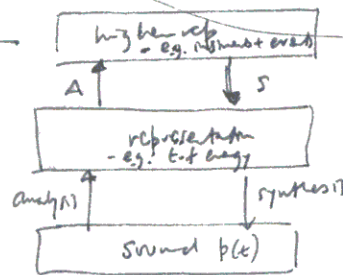 higher rep
- e.g. instrument + events
A S
representation
- e.g. t-f energy
analysis synthesis
Sound p(t)